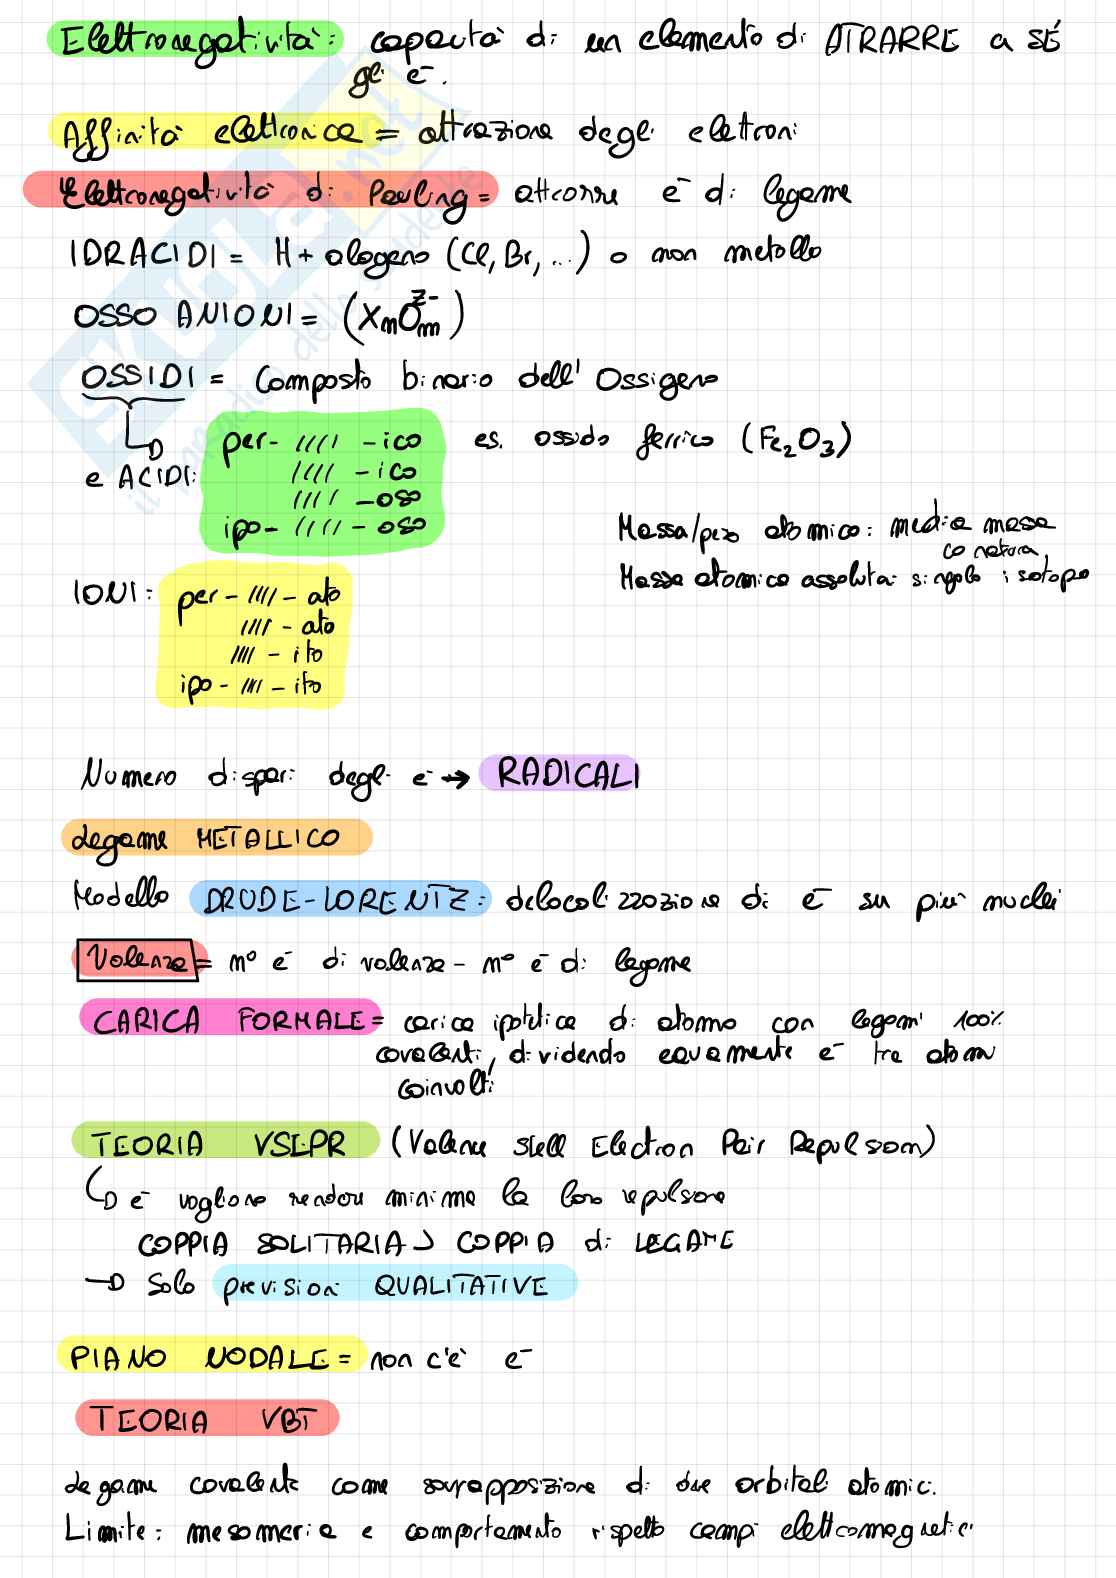 Elettronegatività: capacità di un elemento di ATRARRE a SÉ
gli e⁻.
Affinità elettronica = attrazione degli elettroni
Elettronegatività di Pauling = attrarre e⁻ di legame
IDRACIDI = H + alogeno (Cl, Br, ...) o non metallo
OSSO ANIONI = (XₙOₘᶻ⁻)
OSSIDI = composto binario dell' Ossigeno
per- //// -ico es. ossido ferrico (Fe₂O₃)
e ACIDI: //// -ico
//// -oso
ipo- //// -oso
Massa/peso atomico: media massa
in natura,
Massa atomica assoluta: singolo isotopo
IONI: per- //// -ato
//// -ato
//// -ito
ipo- //// -ito
Numero dispari degli e⁻ → RADICALI
Legame METALLICO
Modello DRUDE-LORENTZ: delocalizzazione di e⁻ su più nuclei
Valenza = n° e⁻ di valenza - n° e⁻ di legame
CARICA FORMALE = carica ipotetica di atomo con legami 100%
covalenti, dividendo equamente e⁻ tra atomi
coinvolti
TEORIA VSEPR (Valence Shell Electron Pair Repulsion)
e⁻ vogliono rendere minima la loro repulsione
COPPIA SOLITARIA > COPPIA di LEGAME
Solo previsioni QUALITATIVE
PIANO NODALE = non c'è e⁻
TEORIA VBT
Legame covalente come sovrapposizione di due orbitali atomici.
Limite: mesomeria e comportamento rispetto campi elettromagnetici
SKUOLA.net
il paradiso dello studente